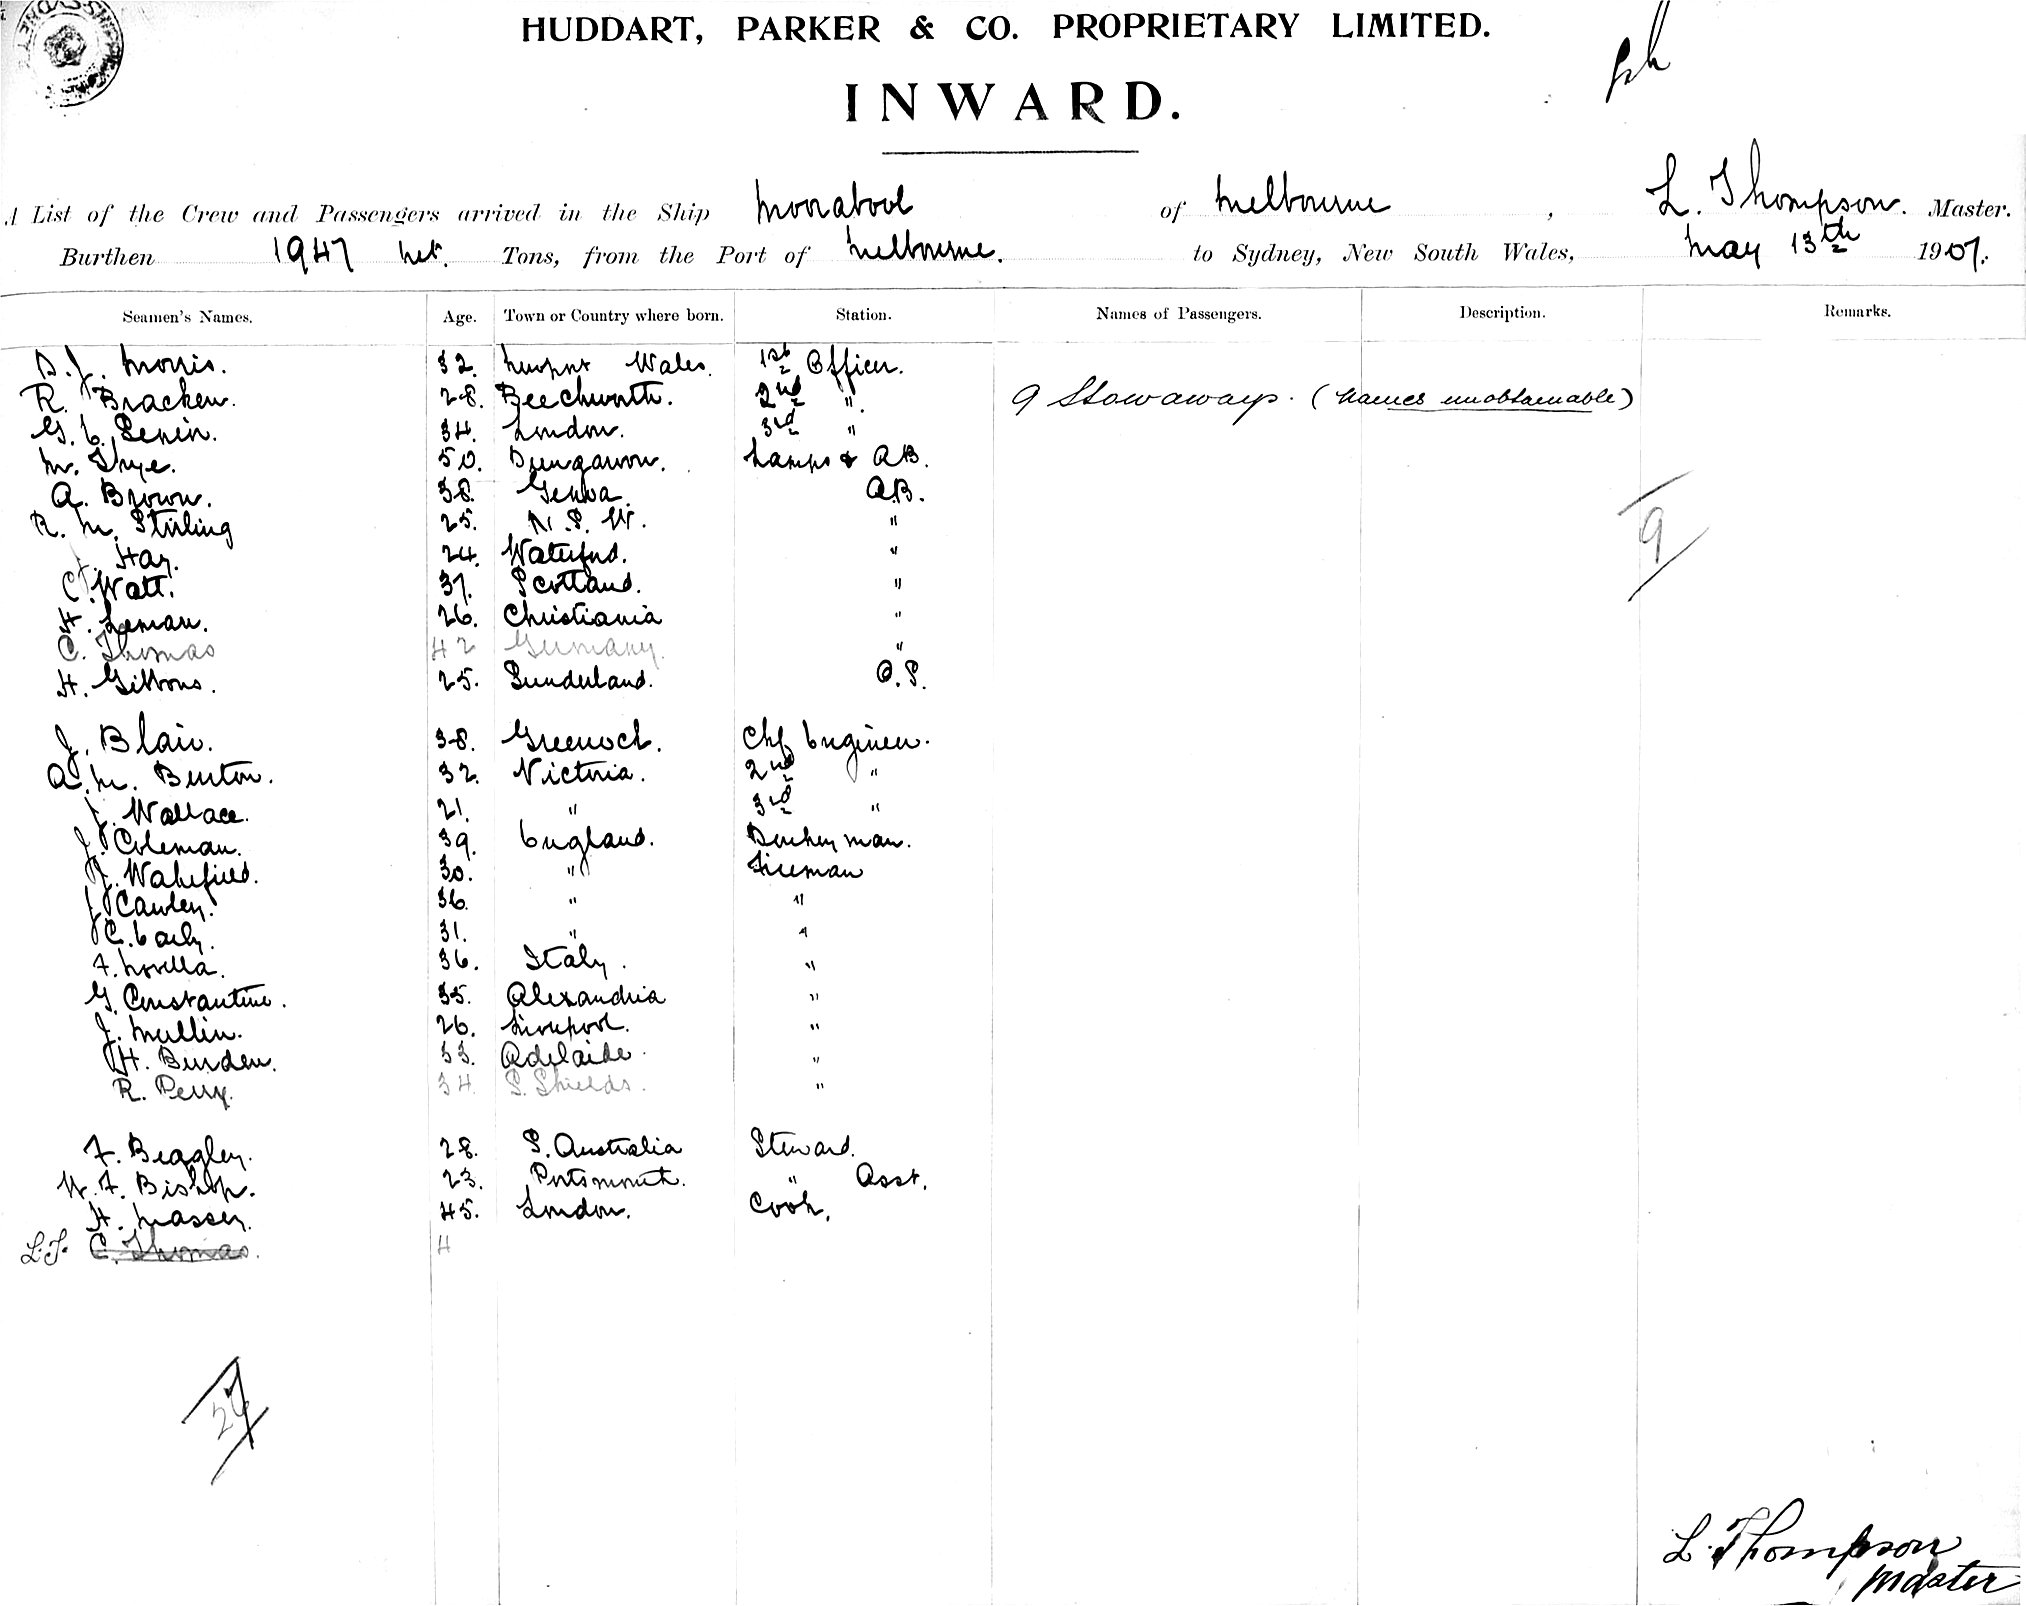 HUDDART, PARKER & CO. PROPRIETARY LIMITED.
INWARD.
A List of the Crew and Passengers arrived in the Ship Moorabool of Melbourne, L. Thompson. Master.
Burthen 1947 net. Tons, from the Port of Melbourne. to Sydney, New South Wales, May 13th 1907.
Seamen's Names. Age. Town or Country where born. Station. Names of Passengers. Description. Remarks.
D. J. Morris. 32. Newport Wales. 1st Officer.
R. Bracken. 28. Beechworth. 2nd " 9 Stowaways. (Names unobtainable)
G. E. Senin. 34. London. 3rd "
M. Frye. 50. Dungarvon. Lamps & AB.
A. Brown. 38. Genoa. A.B.
R. M. Stirling 25. N.S.W. "
Hay. 24. Waterford. "
C. Watt. 37. Scotland. "
H. Leman. 26. Christiania "
C. Thomas 42 Germany. "
H. Gibbons. 25. Sunderland. O.S.
J. Blair. 38. Greenock. Chf Engineer.
A. M. Burton. 32. Victoria. 2nd "
J. Wallace. 21. " 3rd "
J. Coleman. 39. England. Donkeyman.
J. Wakefield. 30. " Fireman
J. Cawley. 36. " "
C. Early. 31. " "
F. Novella. 36. Italy. "
G. Constantine. 35. Alexandria "
J. Mullin. 26. Liverpool. "
H. Burden. 33. Adelaide. "
R. Perry. 34 S. Shields. "
F. Beagley. 28. S. Australia Steward.
W. F. Bishop. 23. Portsmouth. " Asst.
H. Massey. 45. London. Cook.
L.T. C. Thomas. 4
9
L. Thompson
Master